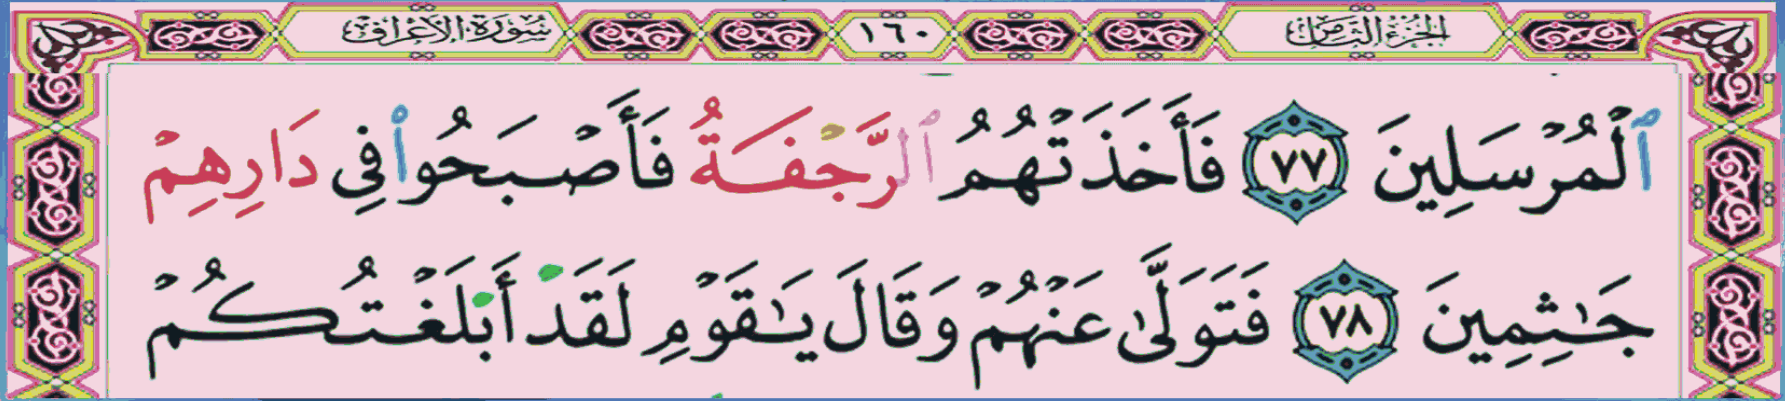 الجزء الثامن ١٦٠ سورة الأعراف
ٱلْمُرْسَلِينَ ٧٧ فَأَخَذَتْهُمُ ٱلرَّجْفَةُ فَأَصْبَحُوا۟ فِى دَارِهِمْ
جَـٰثِمِينَ ٧٨ فَتَوَلَّىٰ عَنْهُمْ وَقَالَ يَـٰقَوْمِ لَقَدْ أَبْلَغْتُكُمْ